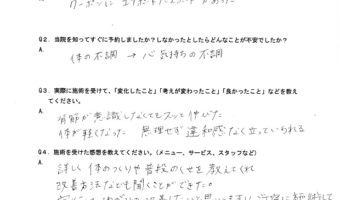 クーポンに
Q2. 当院を知ってすぐに予約しましたか？しなかったとしたらどんなことが不安でしたか？
A.
体の不調 → 心 気持ちの不調
Q3. 実際に施術を受けて、「変化したこと」「考えが変わったこと」「良かったこと」などを教え
てください。
A. 背筋が意識しなくてもスッと伸びた
体が軽くなった 無理せず違和感なく立っていられる
Q4. 施術を受けた感想を教えてください。（メニュー、サービス、スタッフなど）
A. 詳しく体のつくりや普段のくせを教えてくれ
改善方法なども聞くことができたか